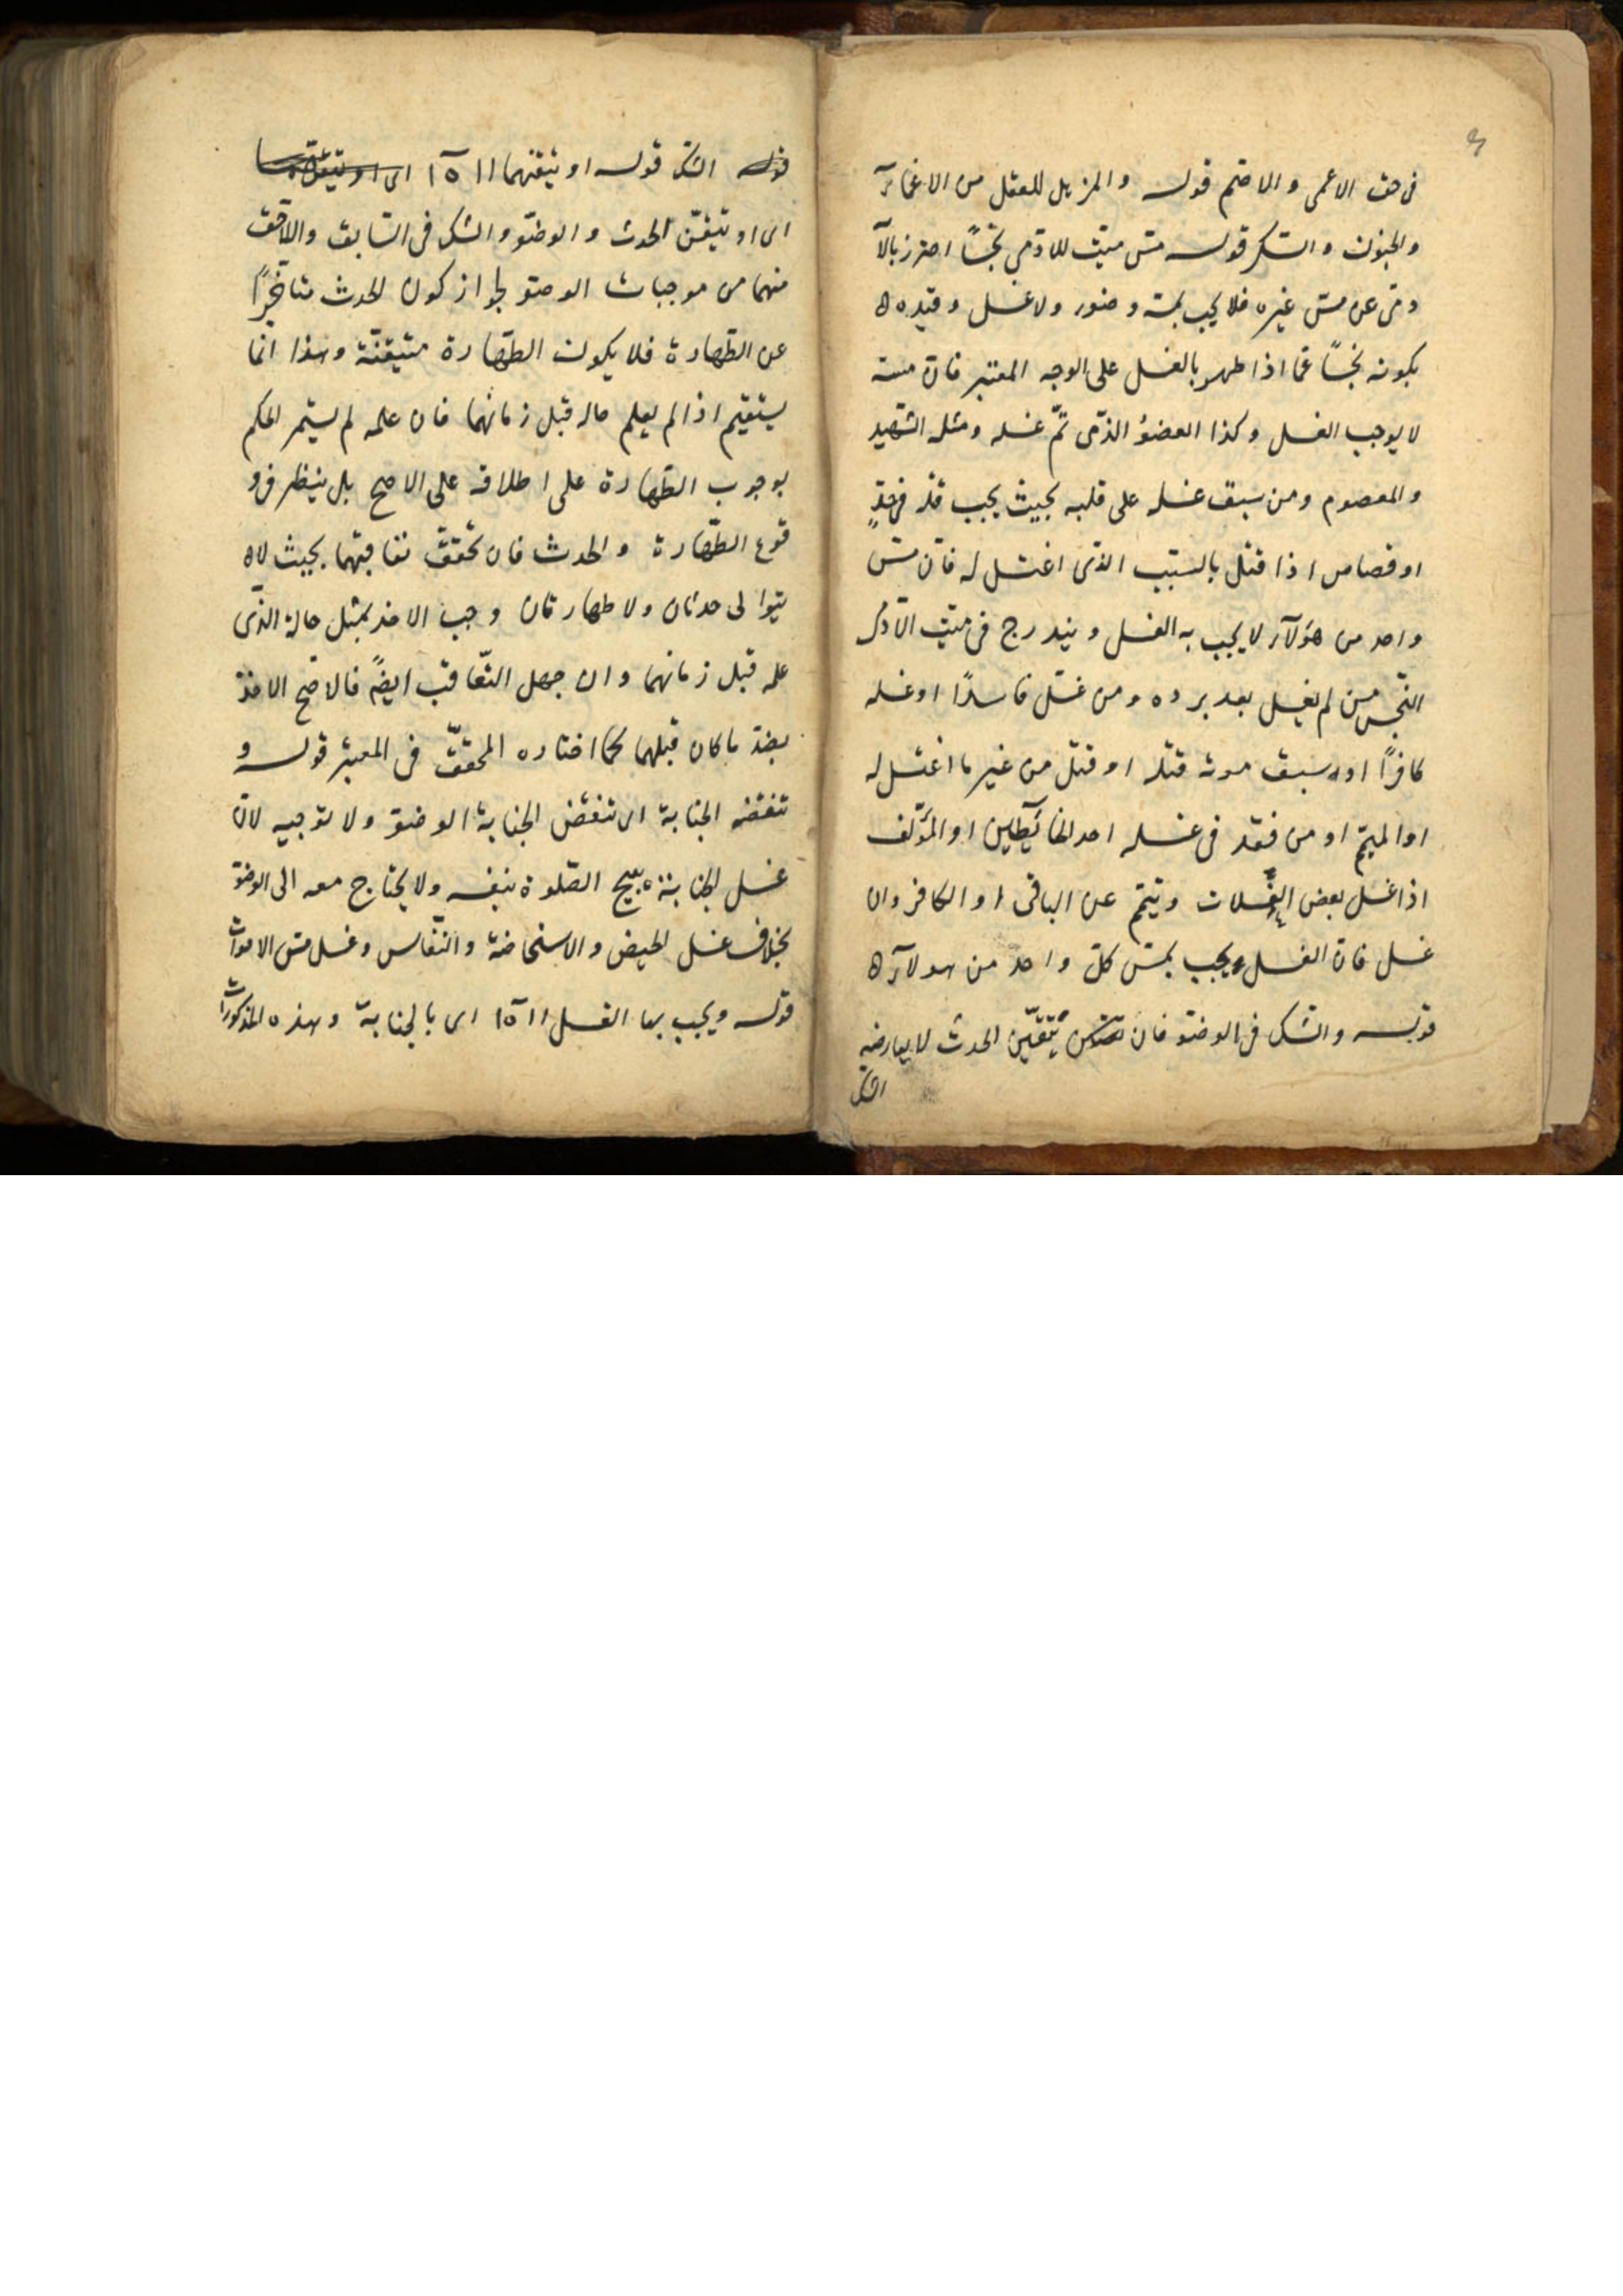 فى حق الاعمى و الاصم قوله و المزيل للعقل من الاغماء
و الجنون و السكر قوله مس ميت للادمى نجسًا احترز بالآ
دمى عن مس غيره فلا يجب بمسه وضوء ولا غسل و قيده
بكونه نجسًا عما اذا طهر بالغسل على الوجه المعتبر فان مسه
لا يوجب الغسل و كذا العضو الذى تمّ غسله و مثله الشهيد
و المعصوم و من سبق غسله على قلبه بحيث يجب قتله فى حدٍ
او قصاص اذا قتل بالسبب الذى اغتسل له فان مسّ
واحد من هؤلآء لا يجب به الغسل و يندرج فى ميت الآدمى
النجس من لم يغسل بعد برده و من غسل فاسدًا او غسله
كافرًا او سبق موته قتله او قتل من غير ما اغتسل له
او الميمم او من فقد فى غسله احد الخليطين او المؤلف
اذا غسل بعض الغسلات و تيمم عن الباقى او الكافر وان
غسل فان الغسل يجب بمسّ كلّ واحد من هولآء
قوله و الشك فى الوضو فان يتقين الحدث لا يعارضه
الشك
الشك قوله او تيقنهما اا ١٥
اى او تيقن الحدث و الوضو و الشك فى السابق و اللاحق
منهما من موجبات الوضو لجواز كون الحدث متاخرًا
عن الطهارة فلا يكون الطهارة متيقنة و هذا انما
يستقيم اذا لم يعلم حاله قبل زمانهما فان علمه لم يستمر الحكم
بوجوب الطهارة على اطلاقه على الاصح بل ينظر فى و
قوع الطهارة و الحدث فان تحقق تعاقبهما بحيث لا
يتوالى حدثان ولا طهارتان وجب الاخذ بمثل حاله الذى
علمه قبل زمانهما وان جهل التعاقب ايضً فالاصح الاخذ
بضد ما كان قبلهما كما اختاره المحقق فى المعتبر قوله و
تنقضه الجنابة اى تنقض الجنابة الوضو ولا توجبه لان
غسل الجنابة يبيح الصلوة بنفسه ولا يحتاج معه الى الوضو
بخلاف غسل الحيض و الاستحاضة و النفاس و غسل مس الاموات
قوله و يجب بها الغسل اا ١٥ اى بالجنابة و هذه المذكورات